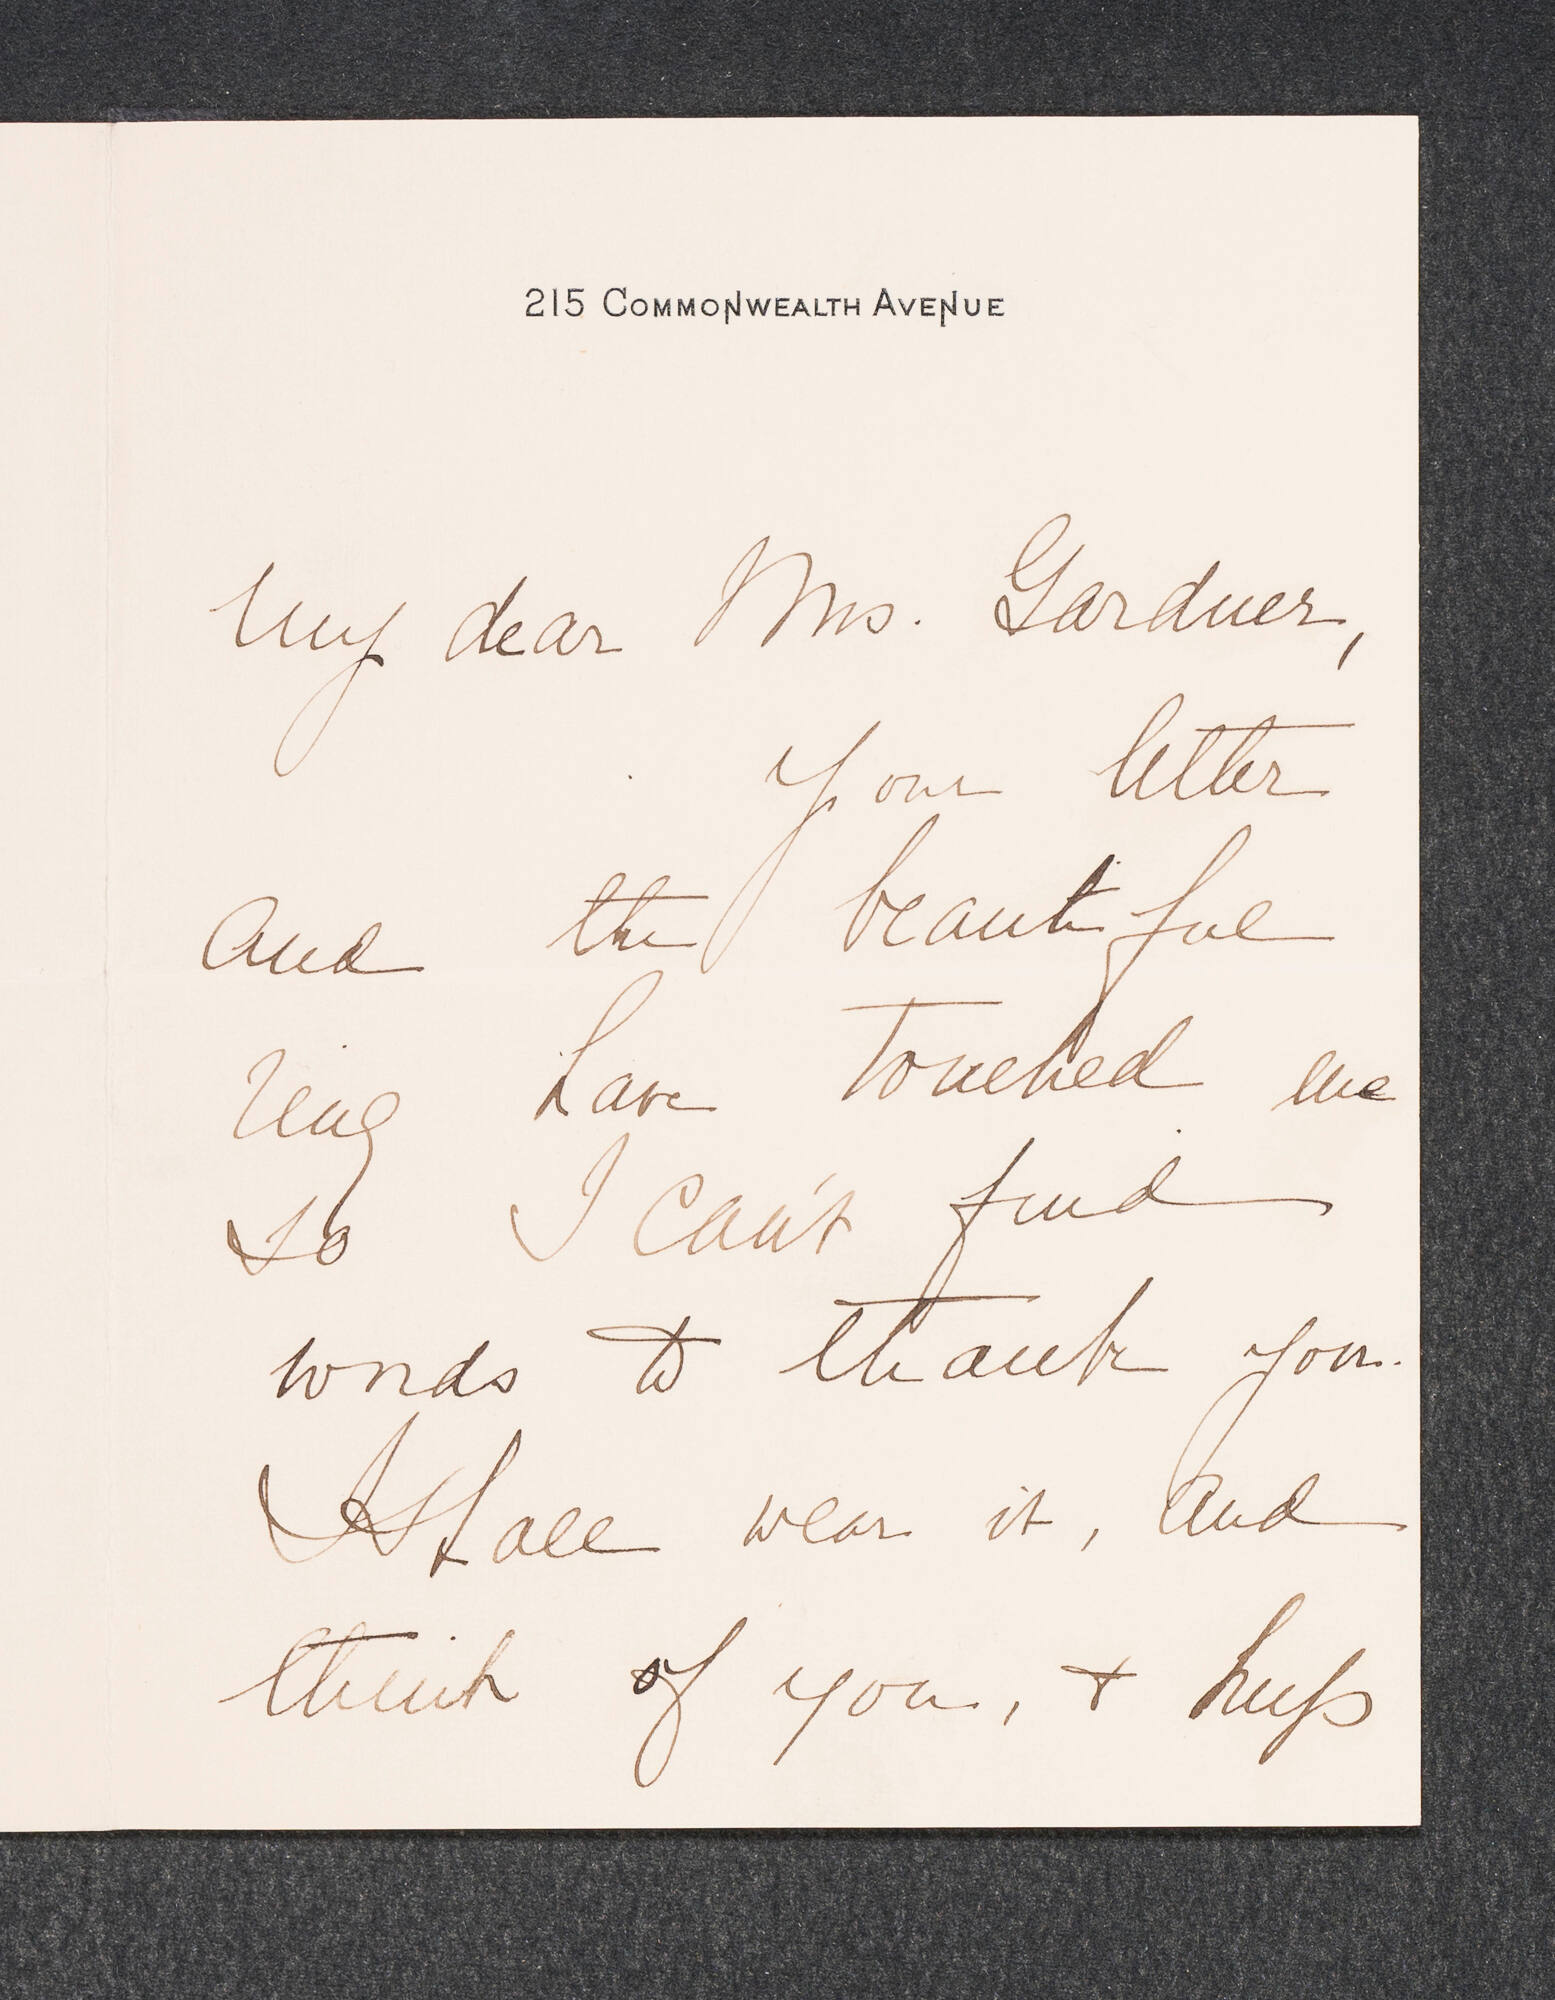 215 COMMONWEALTH AVENUE
My dear Mrs. Gardner,
Your letter
and the beautiful
ring have touched me
so I can't find
words to thank you.
I shall wear it, and
think of you, + keep